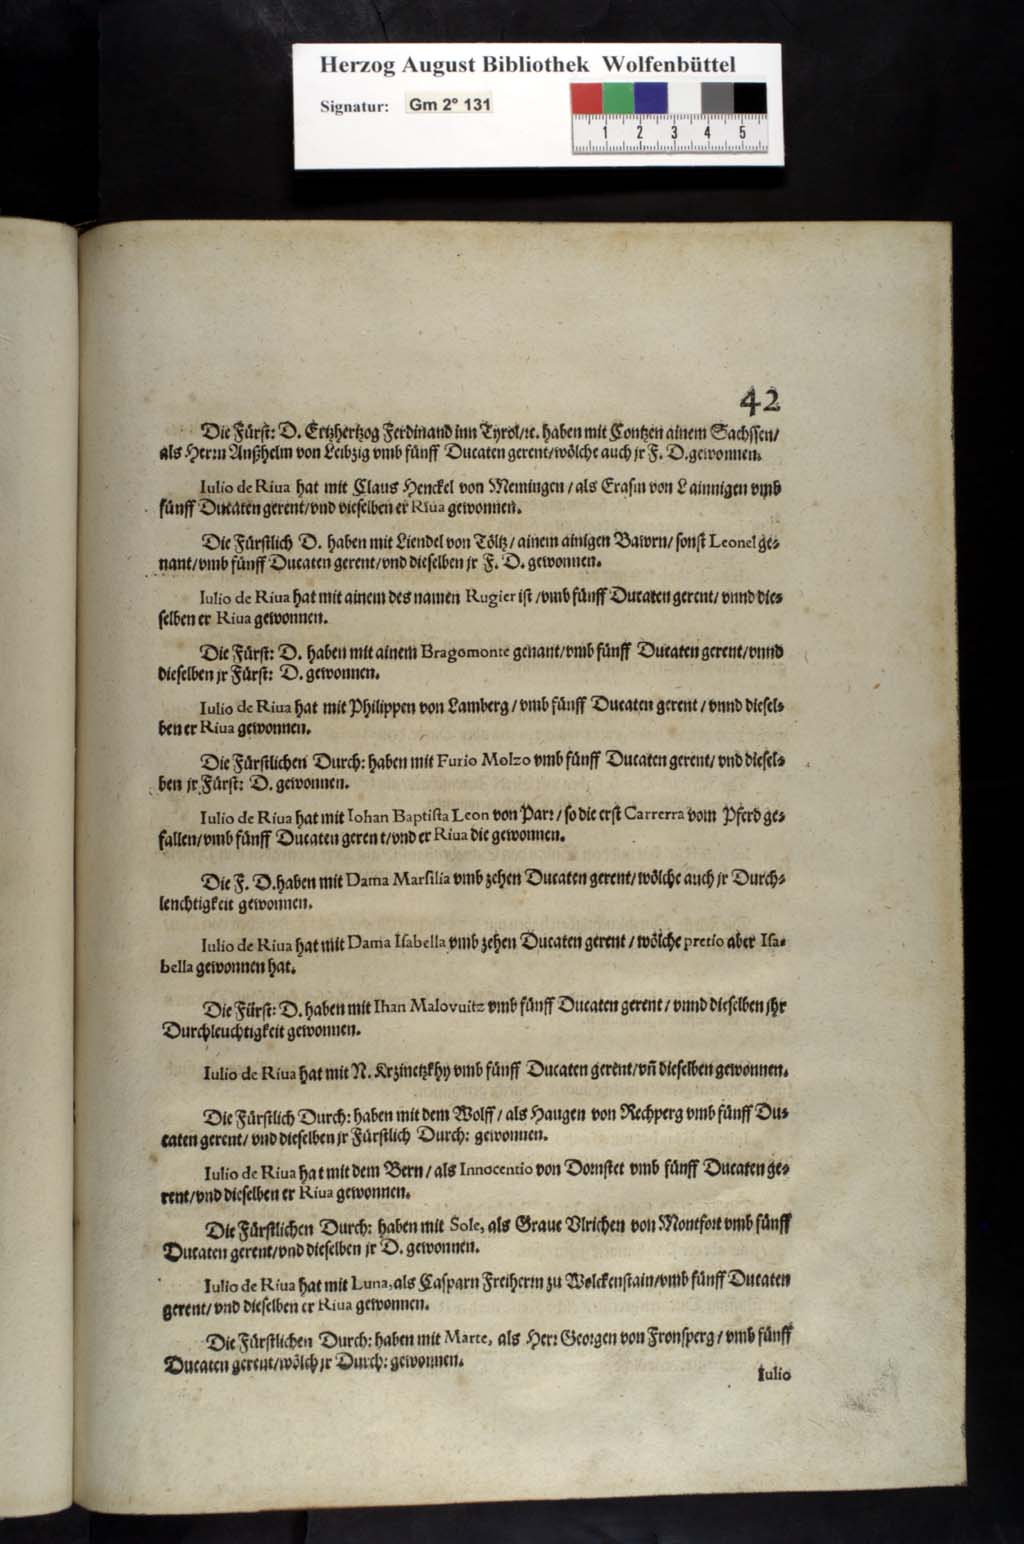 Herzog August Bibliothek Wolfenbüttel
Signatur: Gm 2° 131
1 2 3 4 5
42
Die Fürst: D. Ertzhertzog Ferdinand inn Tyrol/ꝛc. haben mit Contzen ainem Sachssen/
als Herrn Anßhelm von Leibzig vmb fünff Ducaten gerent/wölche auch jr F. D. gewonnen.
Iulio de Riua hat mit Claus Henckel von Memingen/als Erasm von Lainnigen vmb
fünff Ducaten gerent/vnd dieselben er Riua gewonnen.
Die Fürstlich D. haben mit Liendel von Töltz/ainem ainigen Bawrn/sonst Leonel ge-
nant/vmb fünff Ducaten gerent/vnd dieselben jr F. D. gewonnen.
Iulio de Riua hat mit ainem des namen Rugier ist/vmb fünff Ducaten gerent/vnnd die-
selben er Riua gewonnen.
Die Fürst: D. haben mit ainem Bragomonte genant/vmb fünff Ducaten gerent/vnnd
dieselben jr Fürst: D. gewonnen.
Iulio de Riua hat mit Philippen von Lamberg/vmb fünff Ducaten gerent/vnnd diesel-
ben er Riua gewonnen.
Die Fürstlichen Durch: haben mit Furio Molzo vmb fünff Ducaten gerent/vnd diesel-
ben jr Fürst: D. gewonnen.
Iulio de Riua hat mit Iohan Baptista Leon von Parr/so die erst Carrerra vom Pferd ge-
fallen/vmb fünff Ducaten gerent/vnd er Riua die gewonnen.
Die F. D. haben mit Dama Marsilia vmb zehen Ducaten gerent/wölche auch jr Durch-
leuchtigkeit gewonnen.
Iulio de Riua hat mit Dama Isabella vmb zehen Ducaten gerent/wölche pretio aber Isa-
bella gewonnen hat.
Die Fürst: D. haben mit Ihan Malovuitz vmb fünff Ducaten gerent/vnnd dieselben jhr
Durchleuchtigkeit gewonnen.
Iulio de Riua hat mit N. Krzinetzkhy vmb fünff Ducaten gerent/vñ dieselben gewonnen.
Die Fürstlich Durch: haben mit dem Wolff/als Haugen von Rechperg vmb fünff Du-
caten gerent/vnd dieselben jr Fürstlich Durch: gewonnen.
Iulio de Riua hat mit dem Bern/als Innocentio von Dornstet vmb fünff Ducaten ge-
rent/vnd dieselben er Riua gewonnen.
Die Fürstlichen Durch: haben mit Sole, als Graue Vlrichen von Montfort vmb fünff
Ducaten gerent/vnd dieselben jr D. gewonnen.
Iulio de Riua hat mit Luna, als Casparn Freiherrn zu Wolckenstain/vmb fünff Ducaten
gerent/vnd dieselben er Riua gewonnen.
Die Fürstlichen Durch: haben mit Marte, als Herr Georgen von Fronsperg/vmb fünff
Ducaten gerent/wölch jr Durch: gewonnen.
Iulio